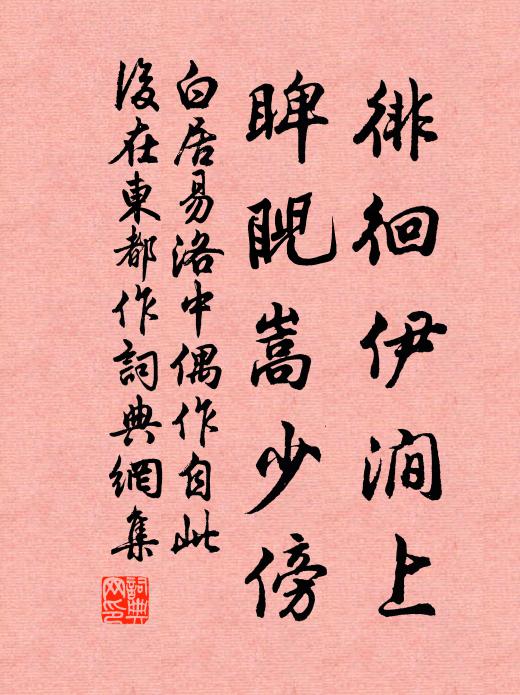 徘徊伊澗上
睥睨嵩少傍
白居易洛中偶作自此
後在東都作詞典網集
詞典网印